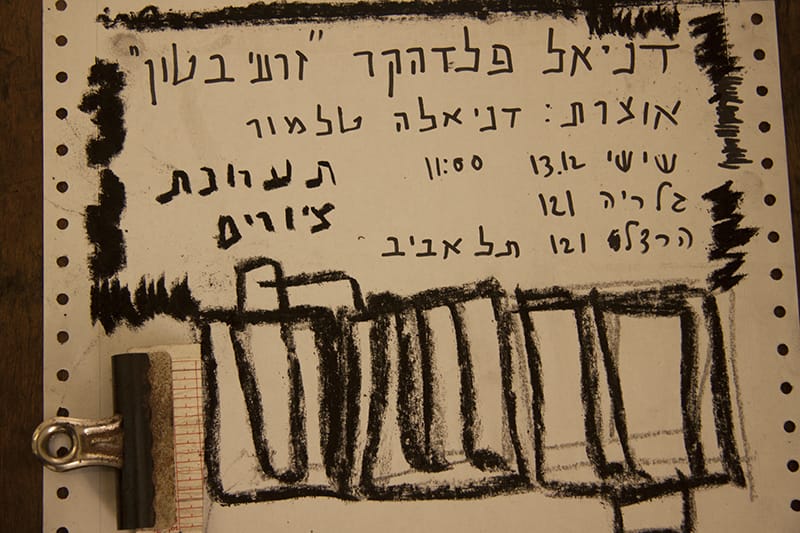 דניאל פלדהקר "זרעי בטון"
אוצרת: דניאלה טלמור
שישי 13.12 11:00
גלריה 121
הרצל 121 תל אביב
תערוכת
ציורים